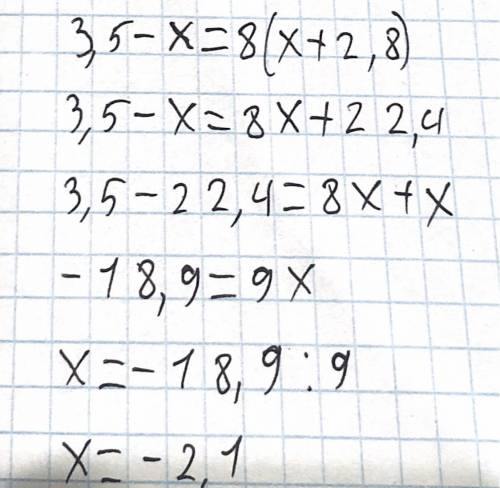 3,5-x=8(x+2,8)
3,5-x=8x+22,4
3,5-22,4=8x+x
-18,9=9x
x=-18,9:9
x=-2,1